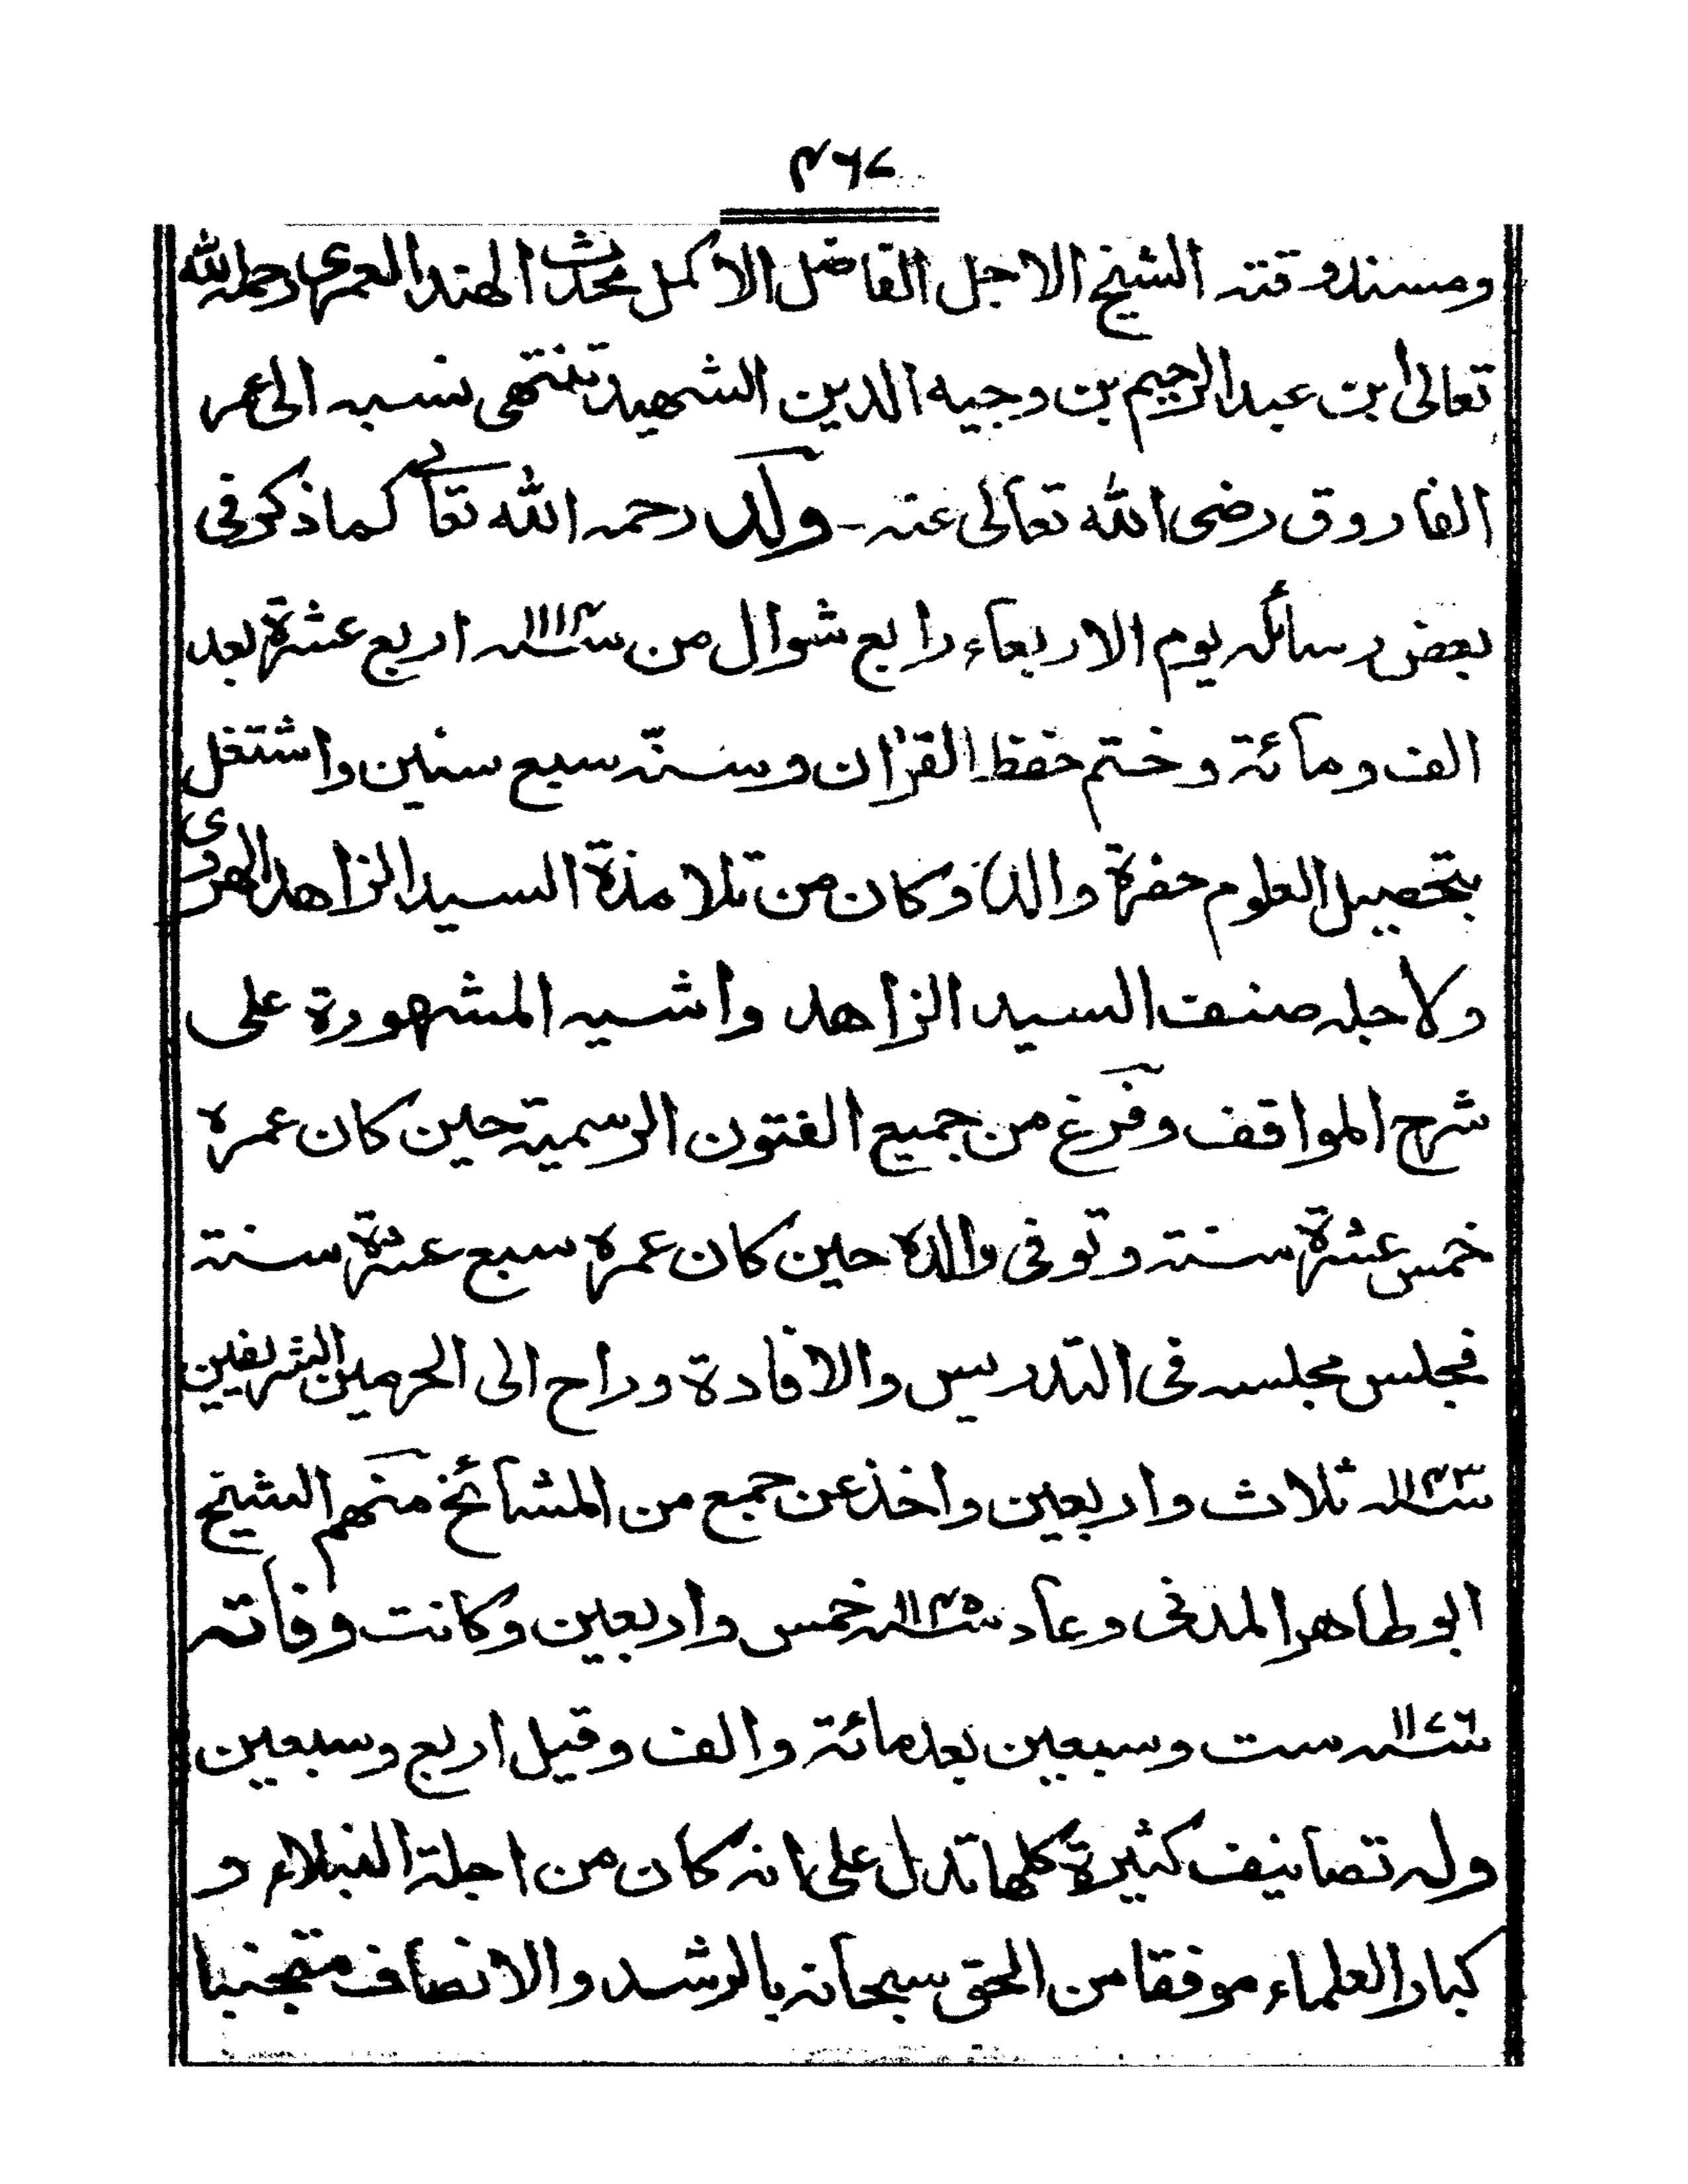 ۴۶۷
ومسند وقته الشيخ الاجل الفاضل الاكمل محدث الهند العمرى رحمه الله
تعالى ابن عبد الرحيم بن وجيه الدين الشهيد تنتهى نسبه الى عمر
الفاروق رضى الله تعالى عنه - ولد رحمه الله تعالى كما ذكر فى
بعض رسائله يوم الاربعاء رابع شوال من سنه ۱۱۱۴ اربع عشرة بعد
الف ومائة وختم حفظ القران وسنه سبع سنين واشتغل
بتحصيل العلوم حضرة والده وكان من تلامذة السيد الزاهد الهروى
ولاجله صنف السيد الزاهد واشيه المشهورة على
شرح المواقف وفرغ من جميع الفنون الرسمية حين كان عمره
خمس عشرة سنة وتوفى والده حين كان عمره سبع عشرة سنة
فجلس مجلسه فى التدريس والافادة وراح الى الحرمين الشريفين
سنه ۱۱۴۳ ثلاث واربعين واخذ عن جمع من المشائخ منهم الشيخ
ابو طاهر المدنى وعاد سنه ۱۱۴۵ خمس واربعين وكانت وفاته
سنه ۱۱۷۶ ست وسبعين بعد مائة والف وقيل اربع وسبعين
وله تصانيف كثيرة كلها تدل على انه كان من اجلة النبلاء و
كبار العلماء موفقا من الحق سبحانه بالرشد والانصاف متجنبا